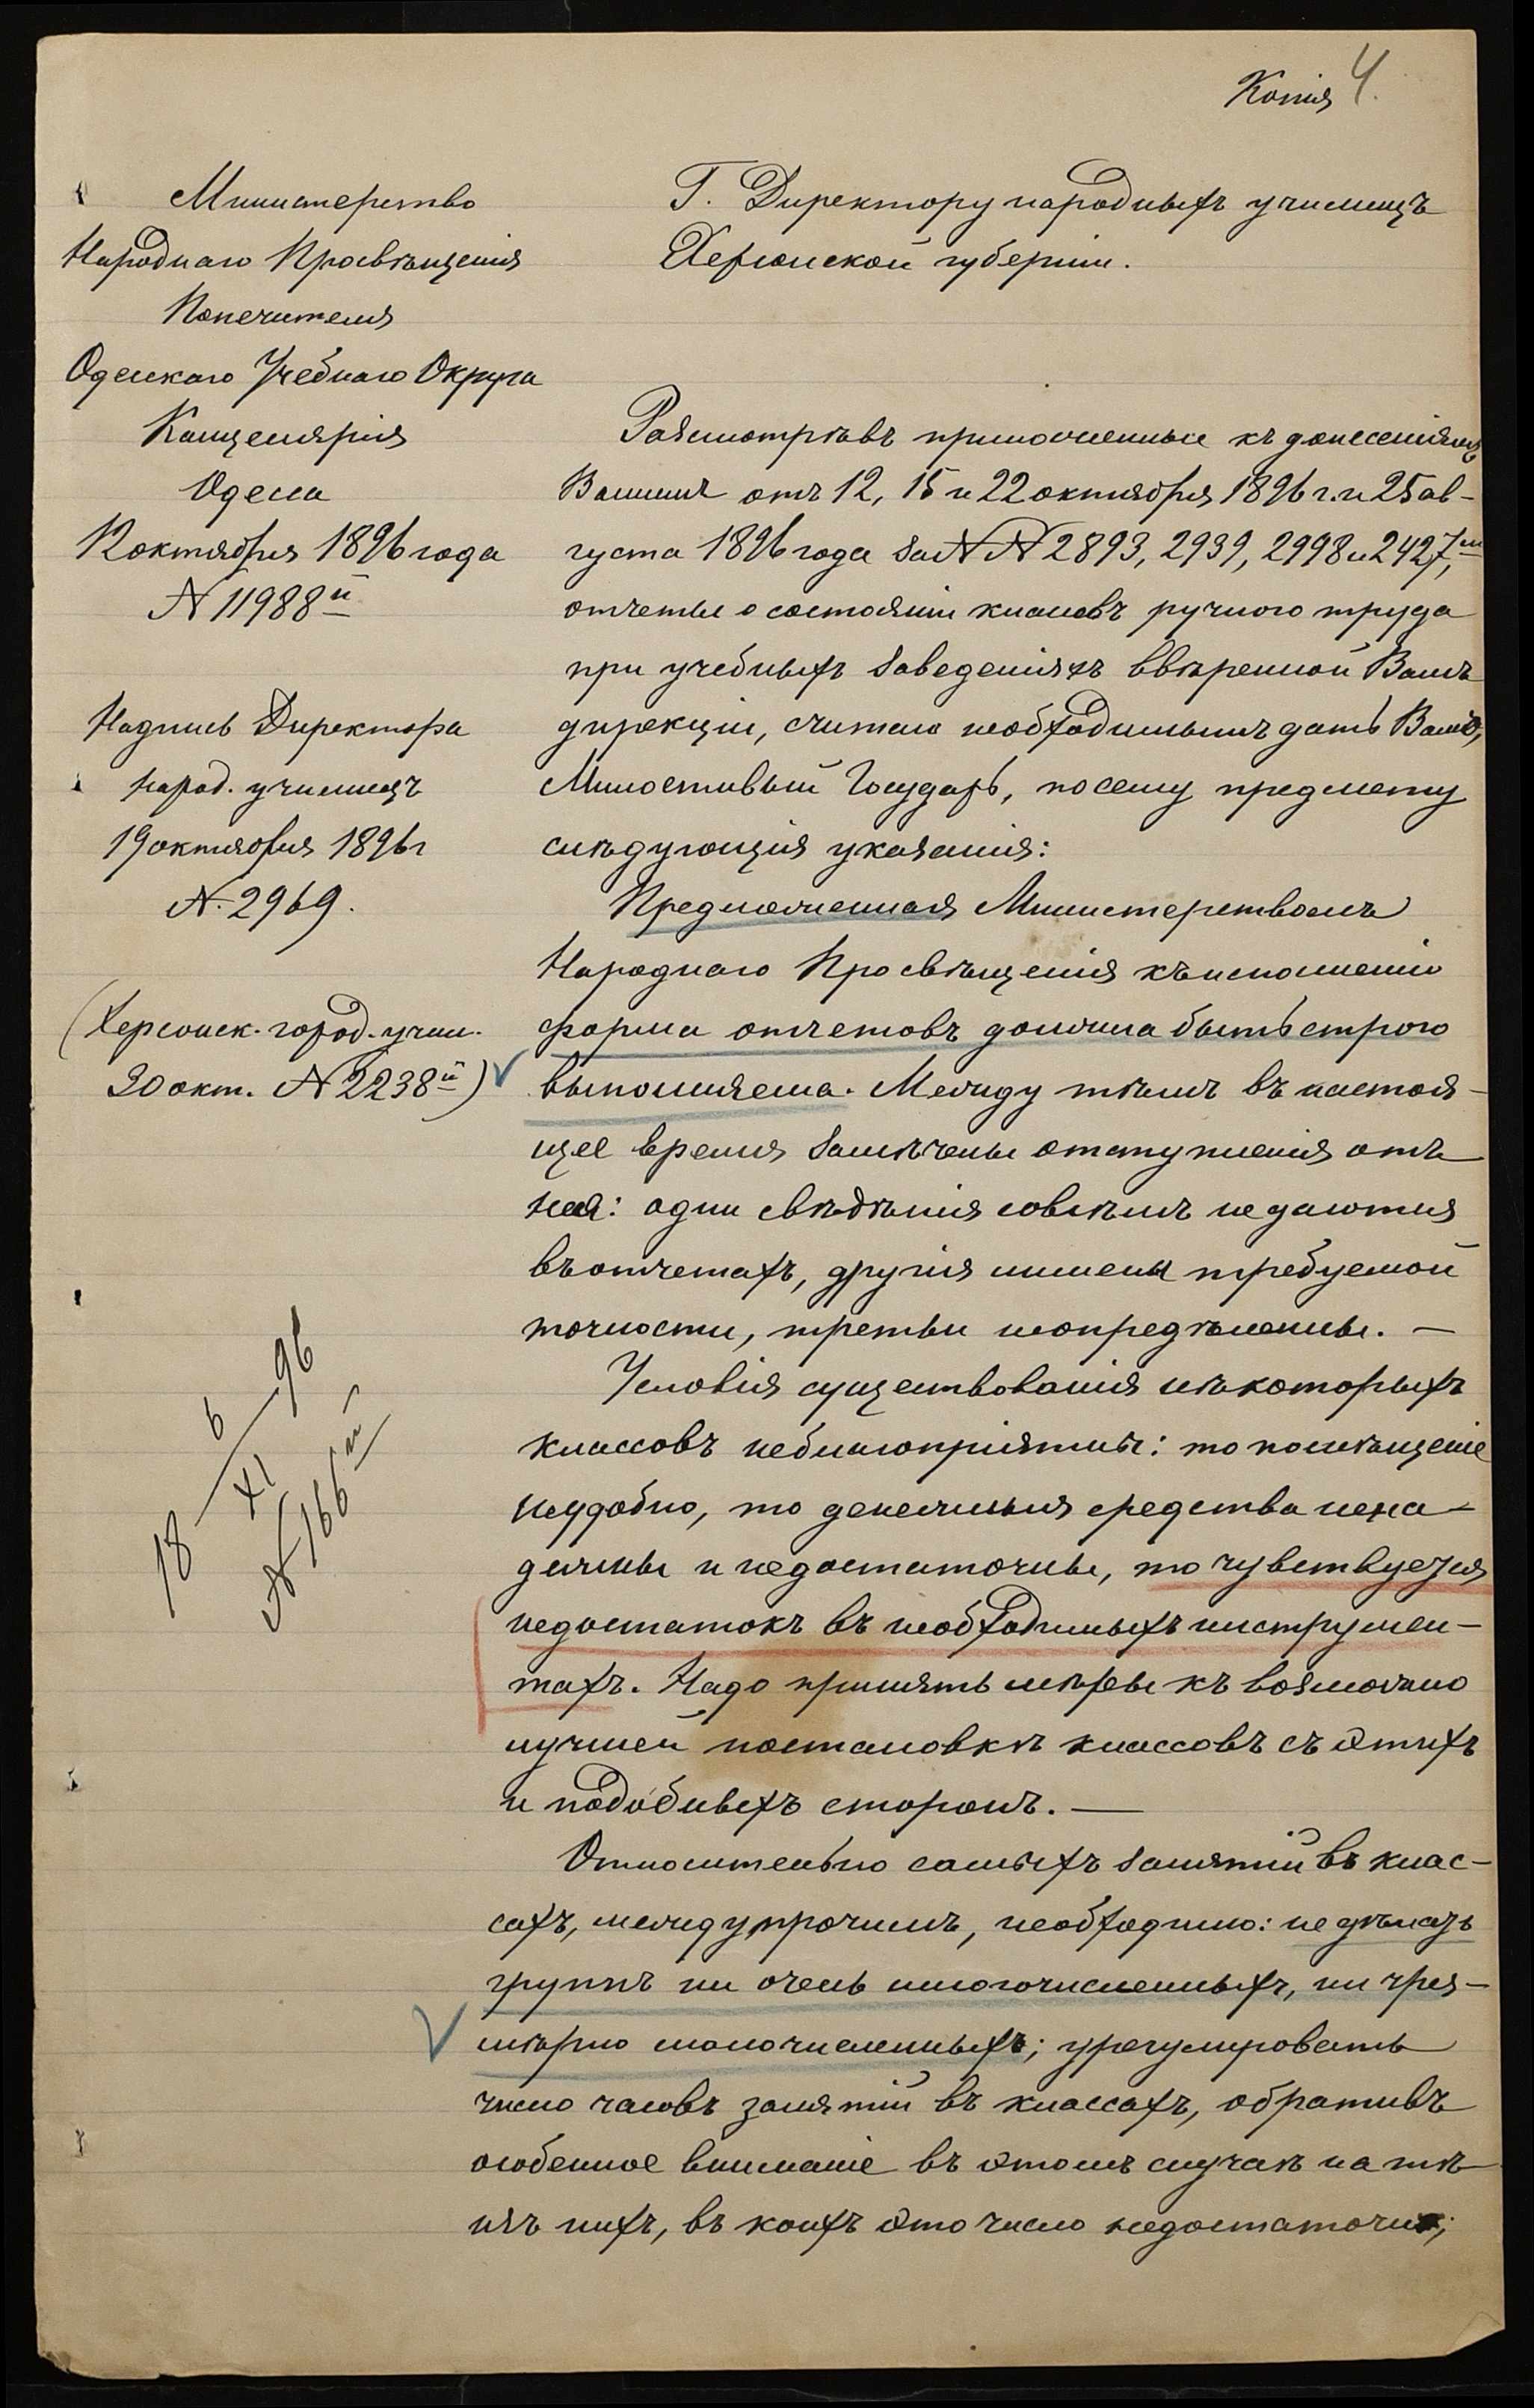 Копія 4.
Министерство
Народнаго Просвѣщенія
Попечителя
Одесскаго Учебнаго Округа
Канцелярія
Одесса
12 октября 1896 года
№ 11988й
Надпись Директора
народ. училищъ
19 октября 1896 г
№ 2969.
(Херсонск. город. учил.
30 окт. № 2238й)
18 6/XI 96
№ 166й
Г. Директору народныхъ училищъ
Херсонской губерніи.
Разсмотрѣвъ приложенные къ донесеніямъ
Вашимъ отъ 12, 15 и 22 октября 1896 г. и 25 ав-
густа 1896 года за №№ 2893, 2939, 2998 и 2427,
отчеты о состояніи классовъ ручного труда
при учебныхъ заведеніяхъ ввѣренной Вамъ
дирекціи, считаю необходимымъ дать Вамъ,
Милостивый Государь, по сему предмету
слѣдующія указанія:
Предложенная Министерствомъ
Народнаго Просвѣщенія къ исполненію
форма отчетовъ должна быть строго
выполняема. Между тѣмъ въ настоя-
щее время замѣчены отступленія отъ
нея: одни свѣдѣнія совсѣмъ не даются
въ отчетахъ, другія лишены требуемой
точности, третьи неопредѣленны. —
Условія существованія нѣкоторыхъ
классовъ неблагопріятны: то помѣщеніе
неудобно, то денежныя средства нена-
дежны и недостаточны, то чувствуется
недостатокъ въ необходимыхъ инструмен-
тахъ. Надо принять мѣры къ возможно
лучшей постановкѣ классовъ съ этихъ
и подобныхъ сторонъ. —
Относительно самыхъ занятій въ клас-
сахъ, между прочимъ, необходимо: не дѣлать
группъ ни очень многочисленныхъ, ни чрез-
мѣрно малочисленныхъ; урегулировать
число часовъ занятій въ классахъ, обративъ
особенное вниманіе въ этомъ случаѣ на тѣ
изъ нихъ, въ коихъ это число недостаточно;